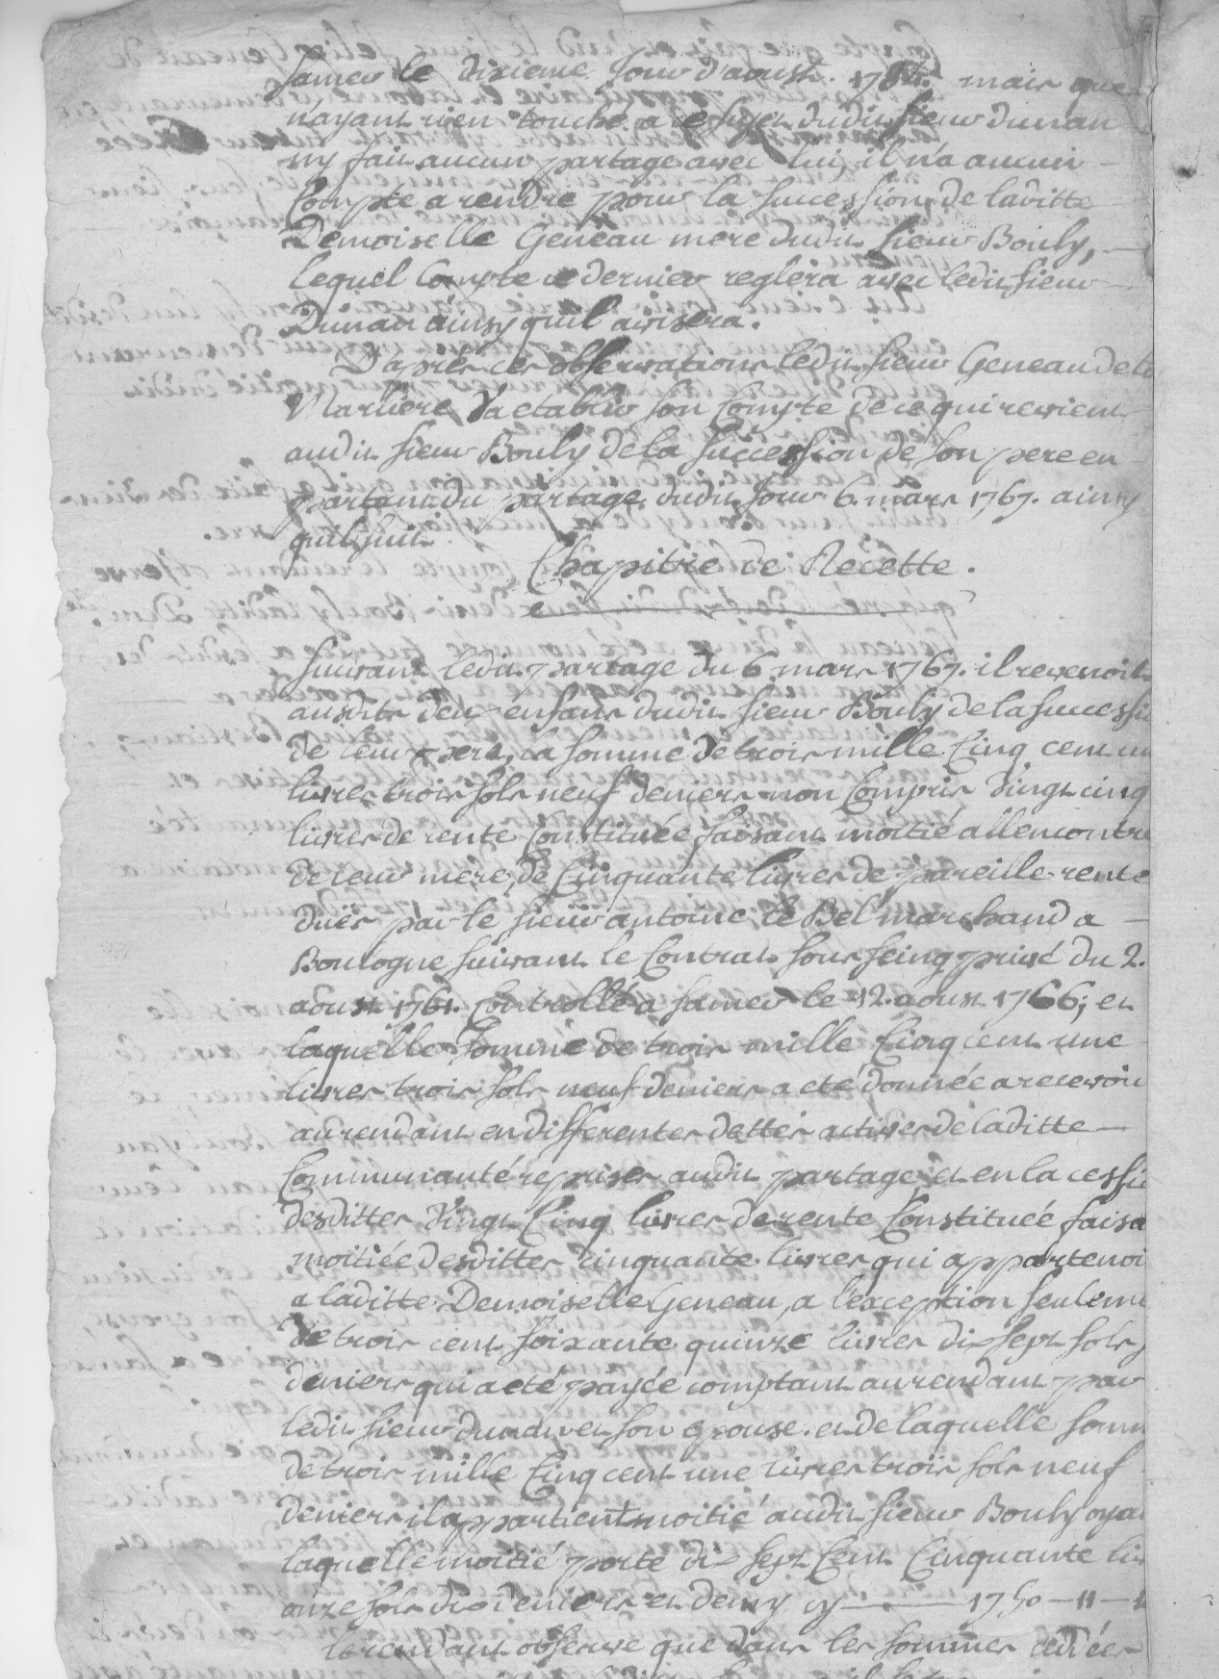 Samer le dixieme Jour d'aoust. mais que
n'ayant rien touché a ce sujet dudit sieur Dunan
ny fait aucun partage avec lui, il n'a aucun
Compte a rendre pour la succession de laditte
Demoiselle Geneau mere dudit sieur Bouly,
lequel Compte ce dernier reglera avec ledit sieur
Dunan ainsy qu'il avisera.
D'après ces observations ledit sieur Geneau de la
Marliere va etablir son Compte de ce qui revient
audit sieur Bouly de la succession de son pere en
partant du partage dudit jour 6. mars 1767. ainsy
qu'il suit
Chapitre de Recette.
Suivant ledit partage du 6 mars 1767. il revenoit
ausdits deux enfans dudit sieur Bouly de la successi
de leur pere, la somme de trois mille Cinq cent un
livres trois sols neuf deniers non Compris vingt cinq
livres de rente Constituée faisant moitié allencontre
de leur mere, de Cinquante livres de pareille rente
dues par le sieur antoine le Bel marchand a
Boulogne suivant le Contrat sous seing privé du 2.
aoust 1761. Controllé a Samer le 12. aoust 1766; et
laquelle Somme de trois mille Cinq cent une
livres trois sols neuf deniers a eté donnée a recevoir
au rendant en differentes dettes actives de laditte
Communauté reprises audit partage, et en la cessi
desdittes vingt Cinq livres de rente Constituée faisa
moitiée desdittes cinquante livres qui appartenoi
a laditte Demoiselle Geneau, a l'exception seuleme
de trois cent soixante quinze livres dix sept sols
deniers qui a eté payée comptant au rendant par
ledit sieur dunan et son epouse. et de laquelle somm
de trois mille Cinq cent une livres trois sols neuf
deniers il appartient moitié audit sieur Bouly oya
laquelle moitié porte dix sept Cent Cinquante liv
onze sols dix deniers et demy cy 1750 - 11 - 1
le rendant observe que dans les sommes cedées